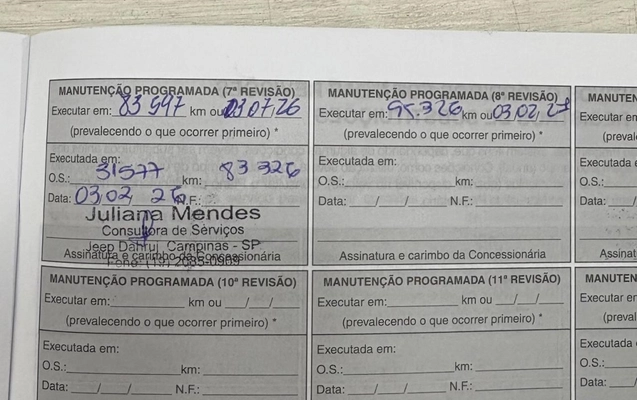 MANUTENÇÃO PROGRAMADA (7ª REVISÃO)
Executar em: 83 997 km ou 03 07, 26
(prevalecendo o que ocorrer primeiro) *
Executada em:
O.S.: 31577 km: 83 326
Data: 03, 02, 26 N.F.:
Juliana Mendes
Consultora de Serviços
Jeep Dahruj Campinas - SP
Assinatura e carimbo da Concessionária
MANUTENÇÃO PROGRAMADA (8ª REVISÃO)
Executar em: 95.326 km ou 03, 02, 27
(prevalecendo o que ocorrer primeiro) *
Executada em:
O.S.: km:
Data: / / N.F.:
Assinatura e carimbo da Concessionária
MANUTEN
Executar em
(preval
Executada
O.S.:
Data: /
Assinat
MANUTENÇÃO PROGRAMADA (10ª REVISÃO)
Executar em: km ou / /
(prevalecendo o que ocorrer primeiro) *
Executada em:
O.S.: km:
Data: / / N.F.:
MANUTENÇÃO PROGRAMADA (11ª REVISÃO)
Executar em: km ou / /
(prevalecendo o que ocorrer primeiro) *
Executada em:
O.S.: km:
Data: / / N.F.:
MANUTEN
Executar er
(preval
Executada
O.S.:
Data: /